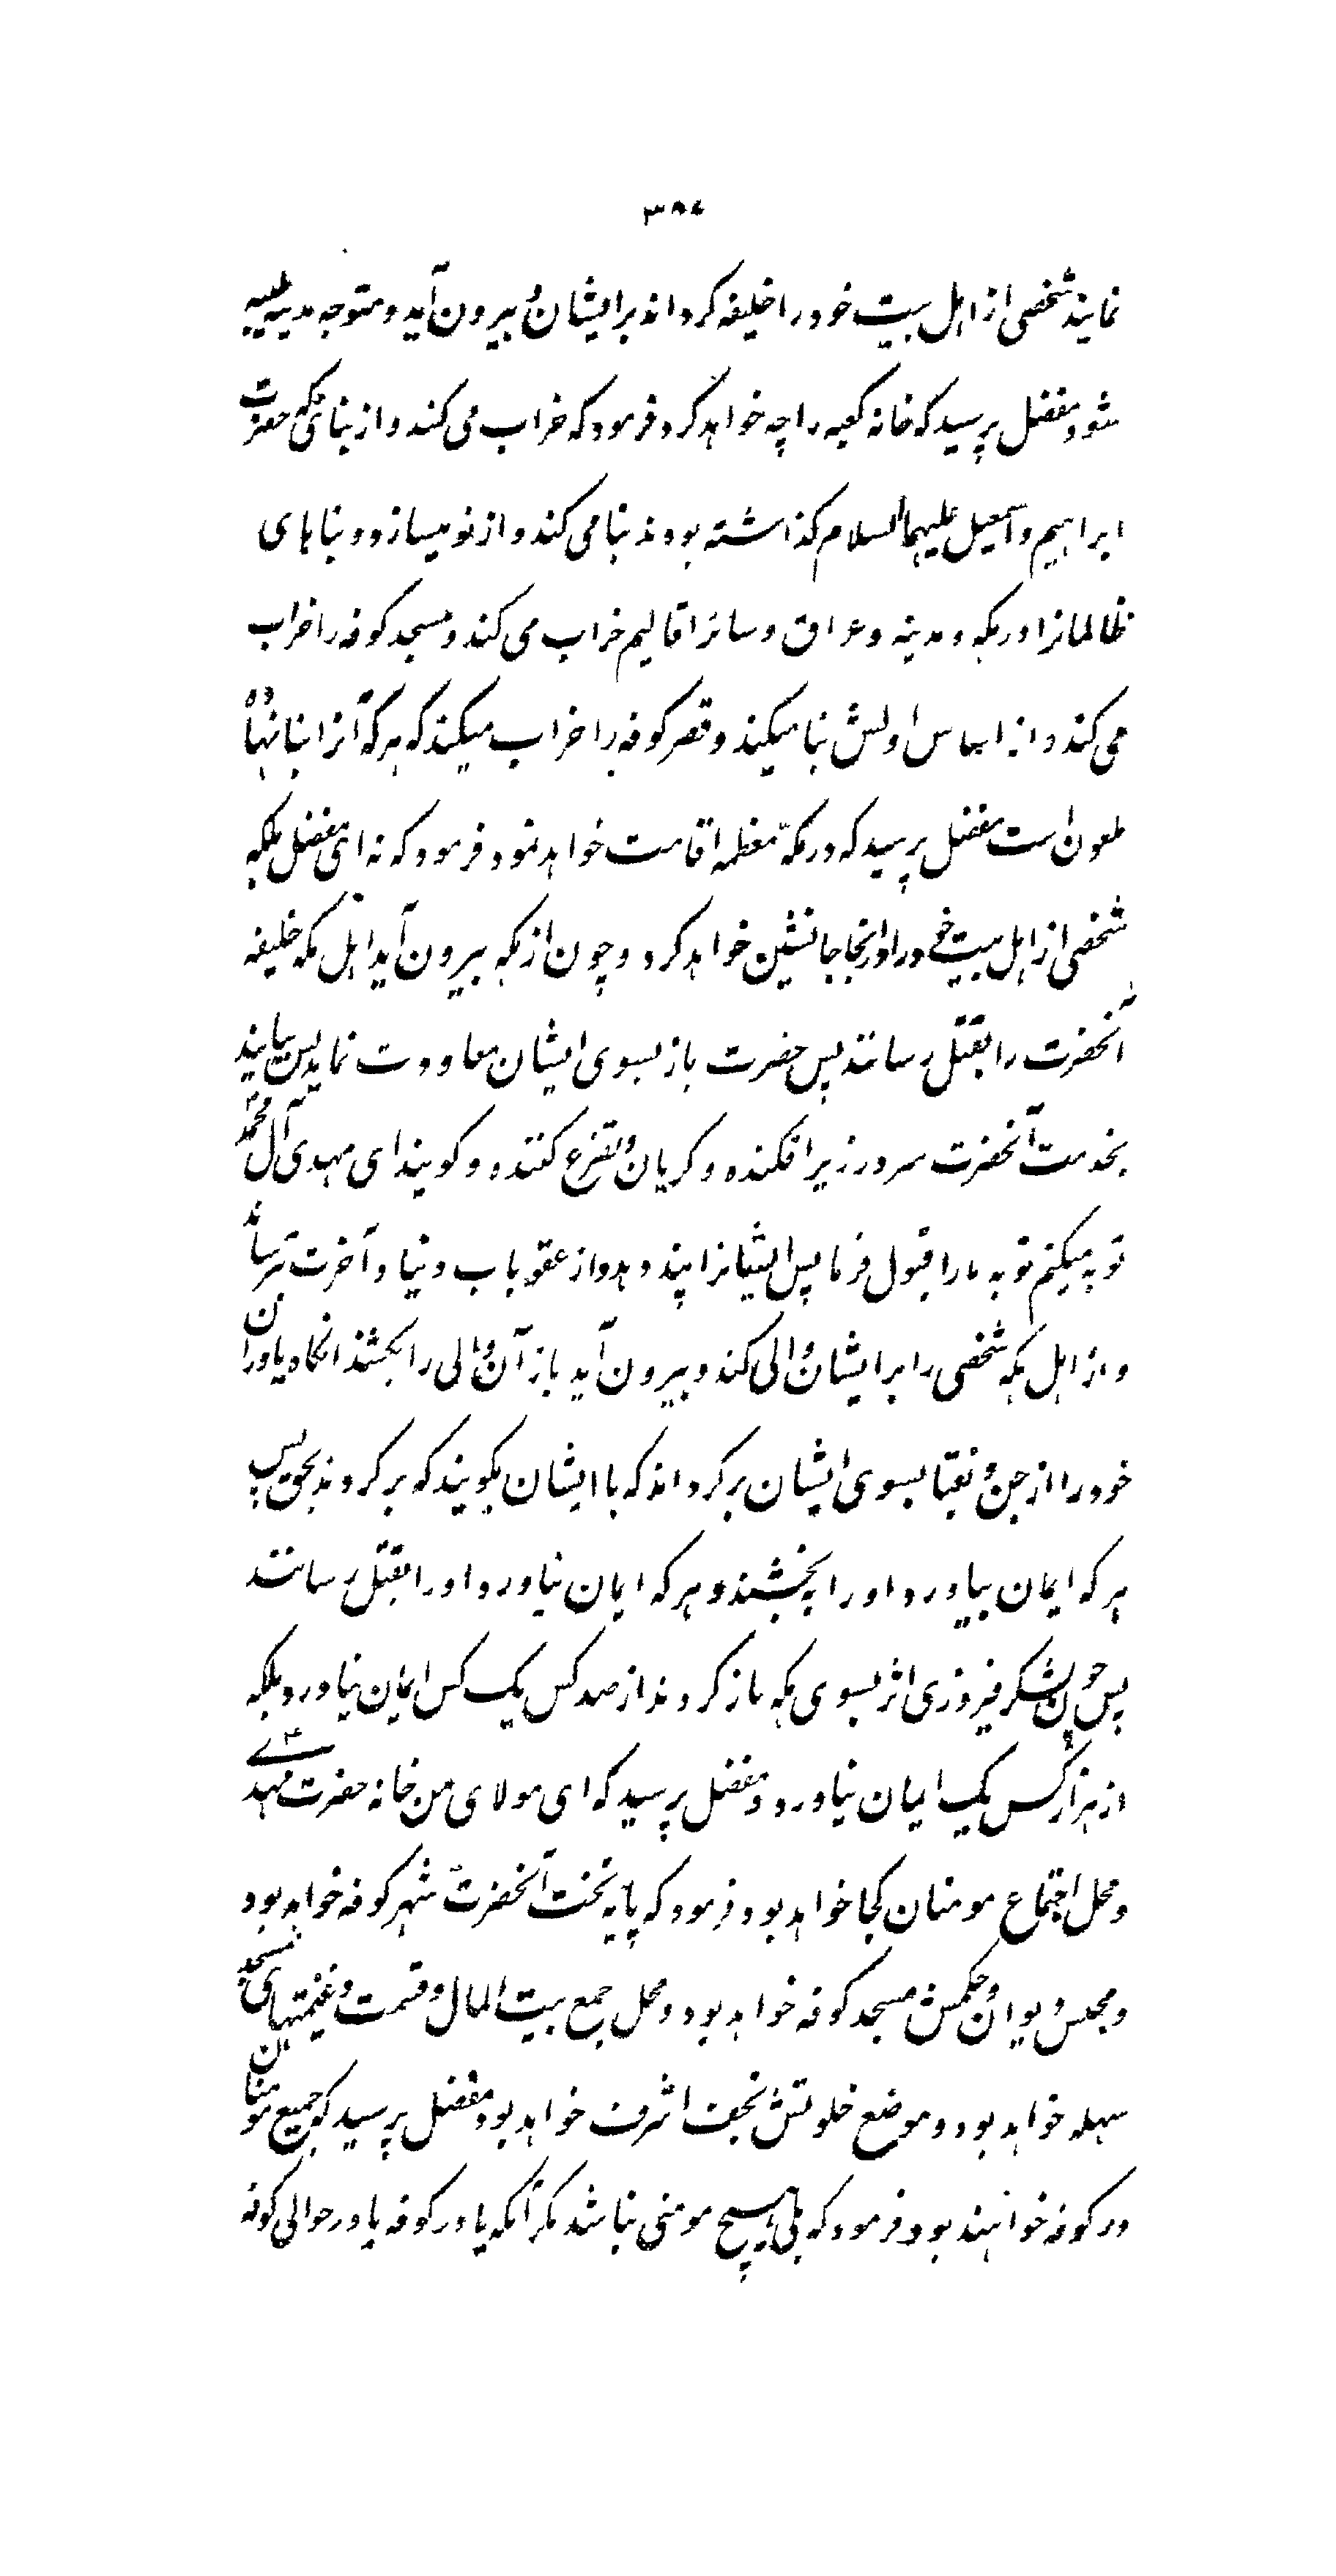 ۳۸۷
نمایند شخصی از اهل بیت خود را خلیفه کرداند بر ایشان و بیرون آید و متوجه مدینه طیبه
شود و مفضل پرسید که خانه کعبه را چه خواهد کرد فرمود که خراب می کند و از بنائی که حضرت
ابراهیم و اسمعیل علیهما السلام کذاشته بودند بنا می کند و از نو میسازد و بناهای
ظالمانرا در مکه و مدینه و عراق و سائر اقالیم خراب می کند و مسجد کوفه را خراب
می کند و از اساس اولش بنا میکند و قصر کوفه را خراب میکند که هر که آنرا بنا نهاده
ملعون است مفضل پرسید که در مکه معظمه اقامت خواهد نمود فرمود که نه ای مفضل بلکه
شخصی از اهل بیت خود را در انجا جانشین خواهد کرد و چون از مکه بیرون آید اهل مکه خلیفه
آنحضرت را بقتل رسانند پس حضرت باز بسوی ایشان معاودت نماید پس بیایند
بخدمت آنحضرت سر در زیر افکنده و کریان و تضرع کننده و کویند ای مهدی آل محمد
توبه میکنم توبه ما را قبول فرما پس ایشانرا پند دهد و از عقوبات دنیا و آخرت ترساند
و از اهل مکه شخصی را بر ایشان والی کند و بیرون آید باز آن والی را بکشند انکاه یاوران
خود را از جن و نقبا بسوی ایشان بر کرداند که با ایشان بکویند که بر کردند بحق پس
هر که ایمان بیاورد او را به بخشند و هر که ایمان نیاورد او را بقتل رسانند
پس چون لشکر فیروزی اثر بسوی مکه باز کردند از صد کس یک کس ایمان نیاورد بلکه
از هزار کس یک ایمان نیاورد و مفضل پرسید که ای مولای من خانه حضرت مهدی
و محل اجتماع مومنان کجا خواهد بود فرمود که پایه تخت آنحضرت شهر کوفه خواهد بود
و مجلس دیوان و حکمش مسجد کوفه خواهد بود و محل جمع بیت المال و قسمت و غنیمتهای مسجد
سهله خواهد بود و موضع خلوتش نجف اشرف خواهد بود مفضل پرسید که جمیع مومنان
در کوفه خواهند بود فرمود که بلی هیچ مومنی نباشد مکر آنکه یا در کوفه یا در حوالی کوفه